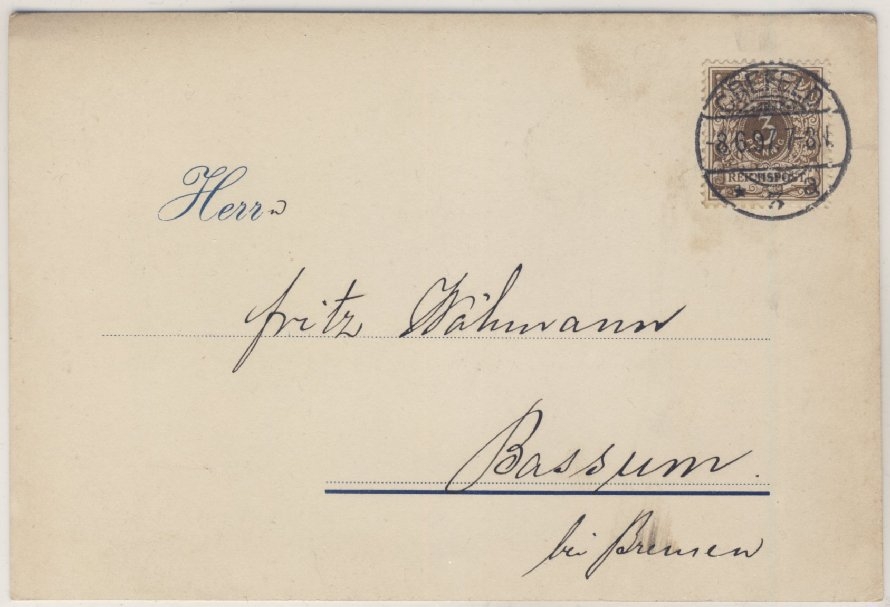 CREFELD
3
PFENNIG
-8.6.97. 7-8N.
REICHSPOST
* 3 a
Herrn
Fritz Wöhmann
Bassum.
bei Bremen